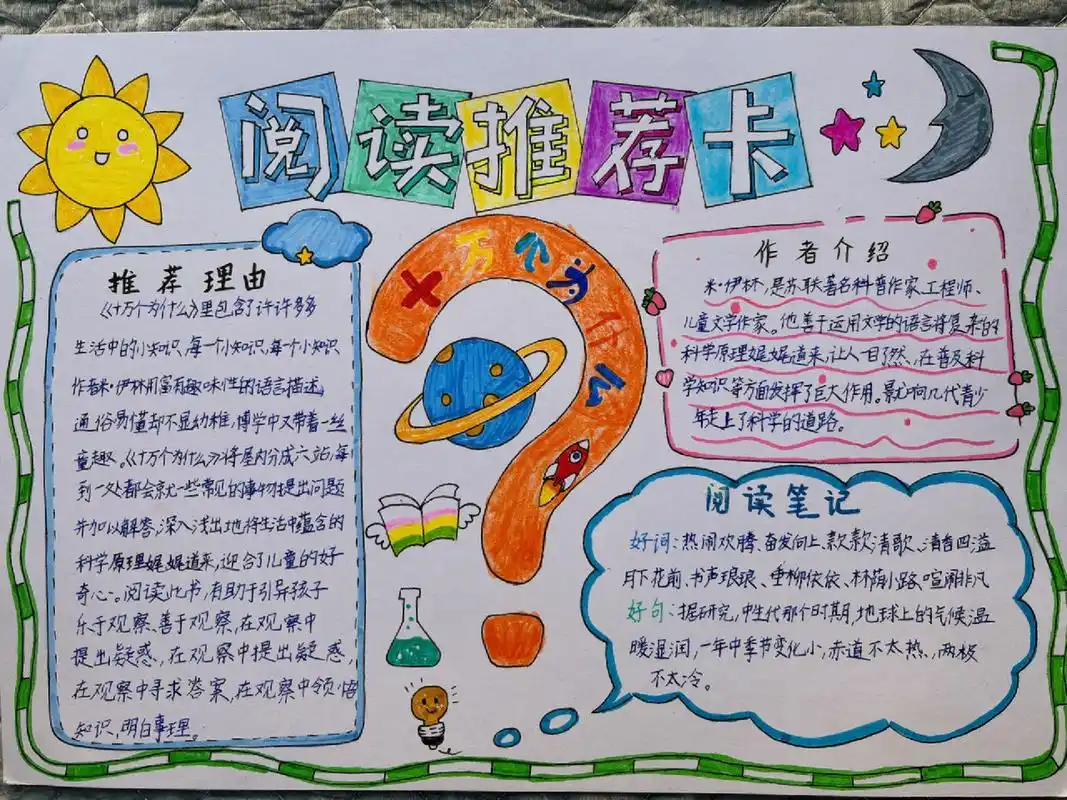 阅读推荐卡
十万个为什么
推荐理由
《十万个为什么》里包含了许许多多
生活中的小知识,每一个小知识,每一个小知识
作者米·伊林用富有趣味性的语言描述,
通俗易懂却不显幼稚,博学中又带着一丝
童趣。《十万个为什么》将屋内分成六站,每
到一处都会就一些常见的事物提出问题
并加以解答,深入浅出地将生活中蕴含的
科学原理娓娓道来,迎合了儿童的好
奇心。阅读此书,有助于引导孩子
乐于观察、善于观察,在观察中
提出疑惑,在观察中提出疑惑,
在观察中寻求答案,在观察中领悟
知识,明白事理。
作者介绍
米·伊林,是苏联著名科普作家、工程师、
儿童文学作家。他善于运用文学的语言将复杂的
科学原理娓娓道来,让人一目了然、在普及科
学知识等方面发挥了巨大作用。影响几代青少
年走上了科学的道路。
阅读笔记
好词:热闹欢腾、奋发向上、款款清歌、清香四溢
月下花前、书声琅琅、垂柳依依、林荫小路、喧闹非凡
好句:据研究,中生代那个时期,地球上的气候温
暖湿润,一年中季节变化小,赤道不太热,两极
不太冷。